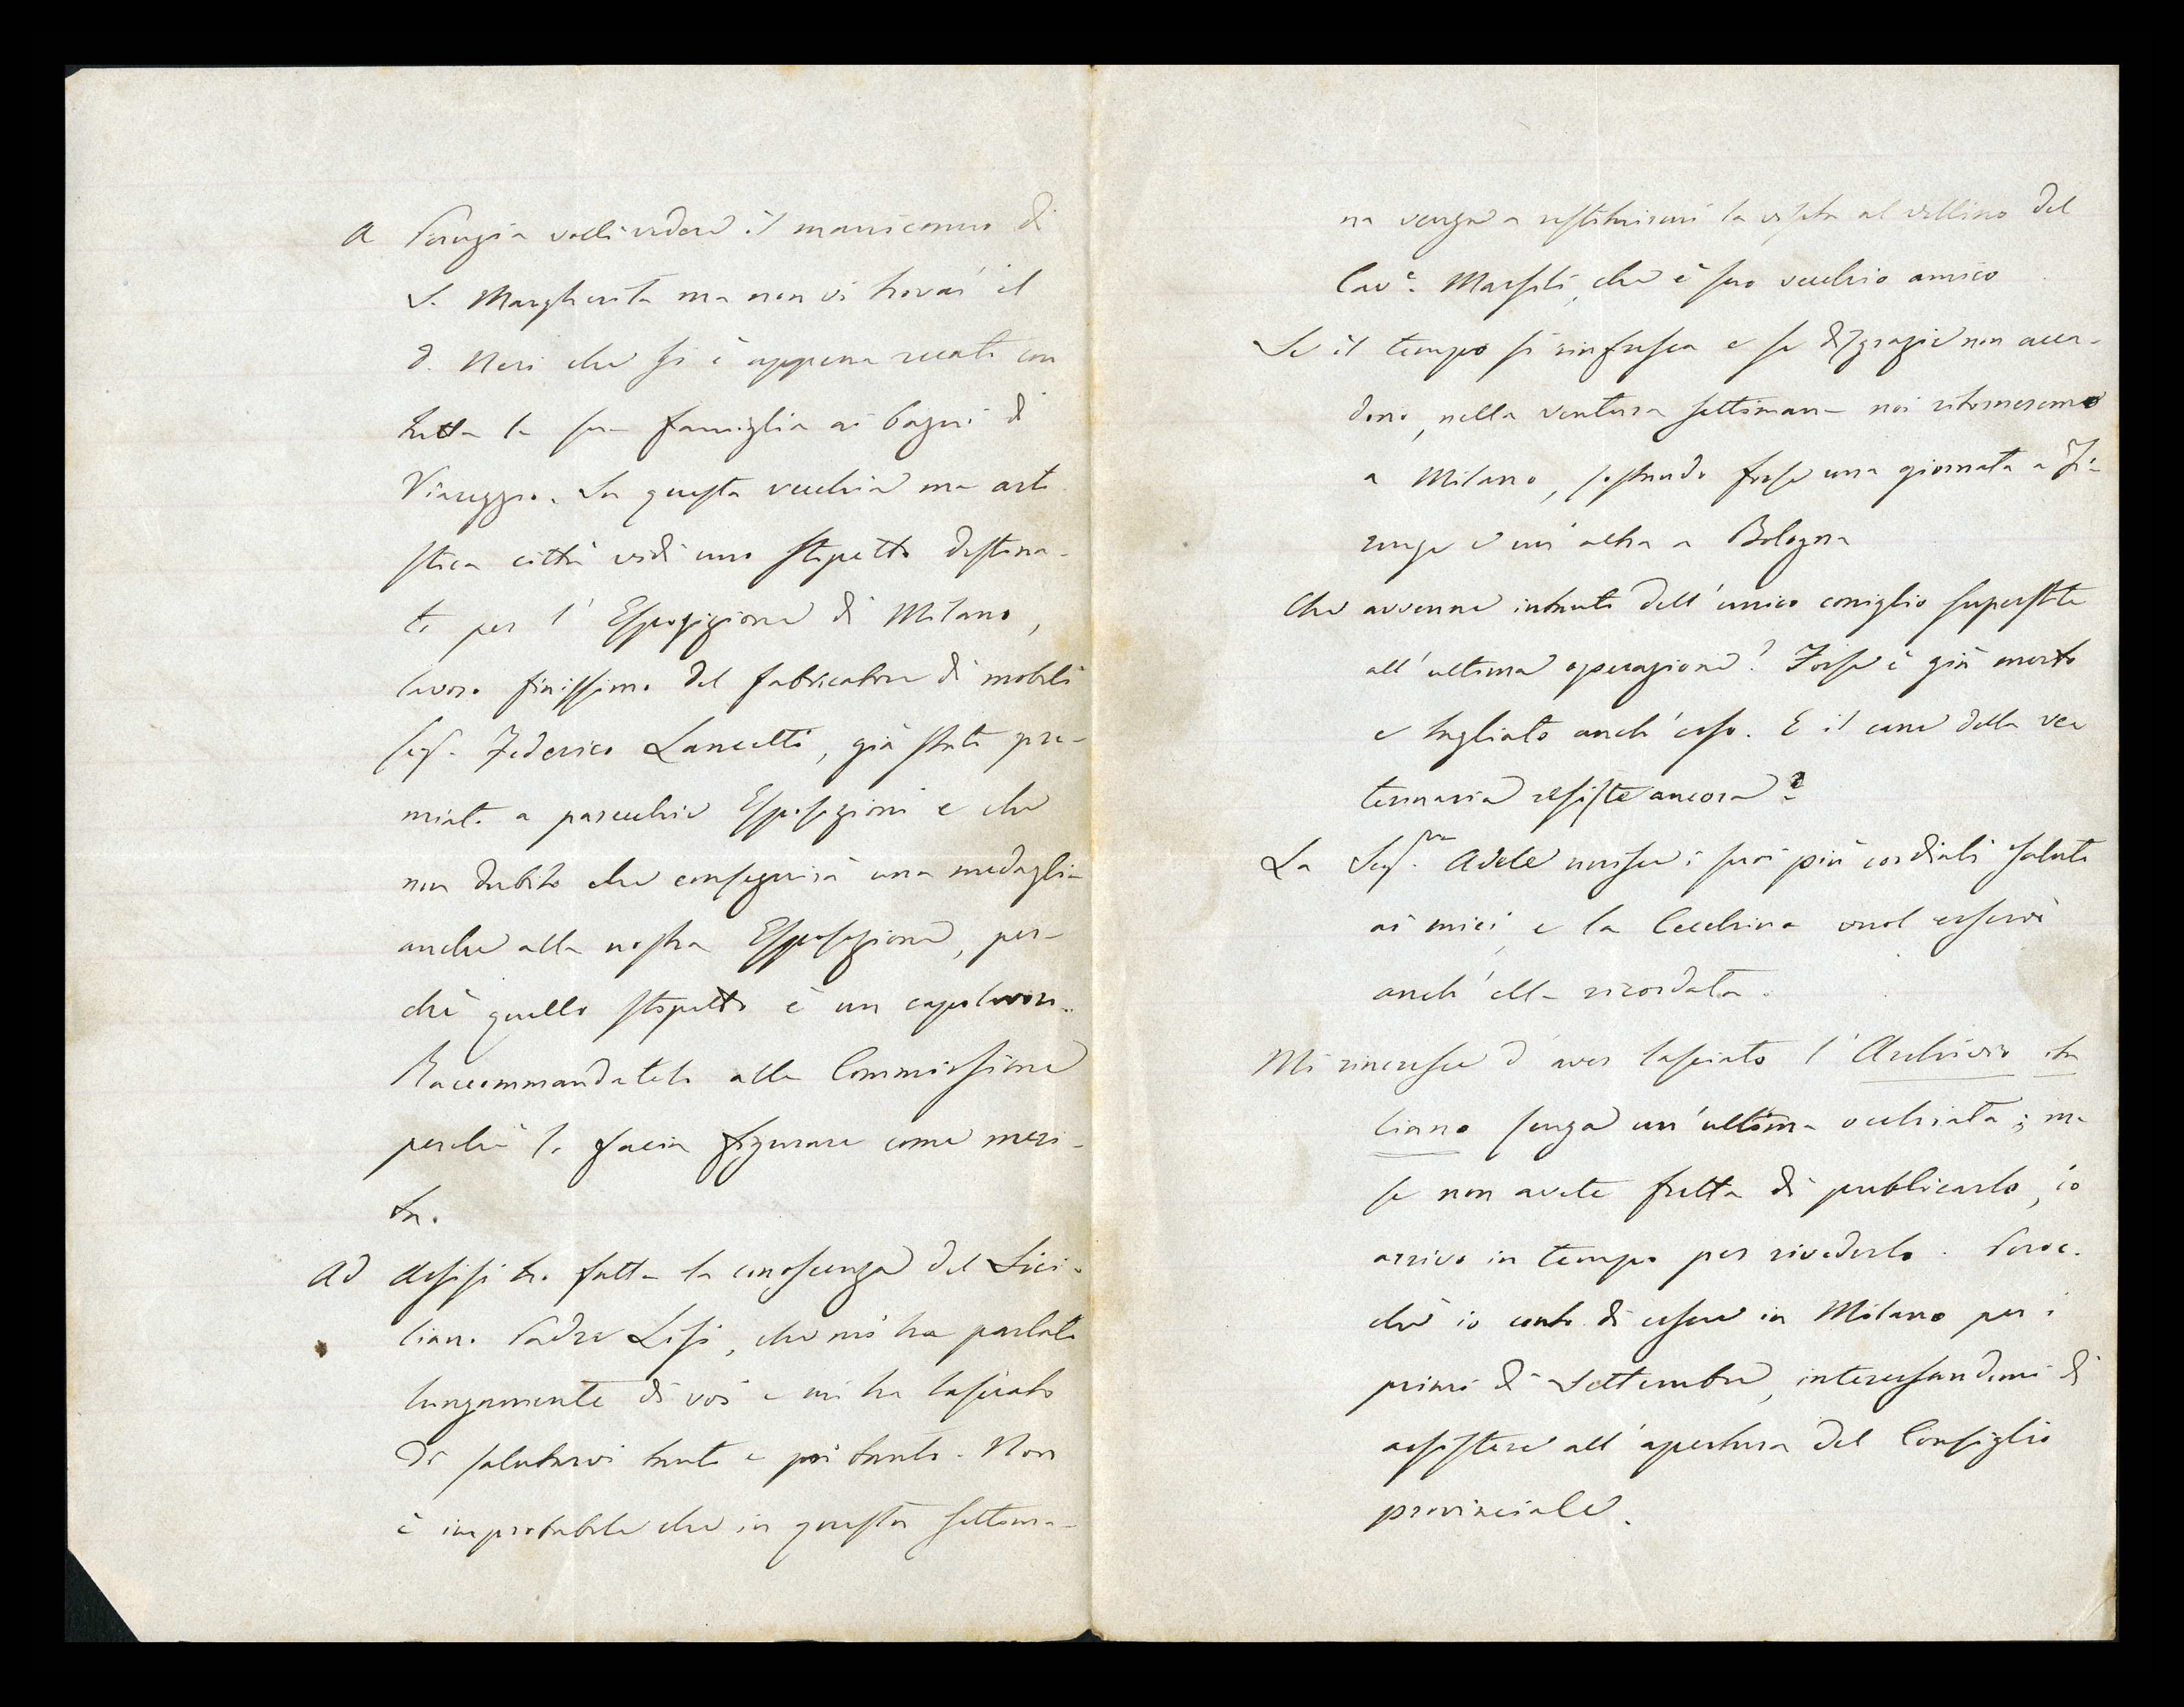 A Perugia volli vedere il manicomio di
S. Margherita ma non vi trovai il
d. Neri che si è appena recato con
tutta la sua famiglia ai bagni di
Viareggio. In questa vecchia ma arti
stica città vidi uno stipetto destina-
to per l'Esposizione di Milano,
lavoro finissimo del fabricatore di mobili
sig. Federico Lancetti, già stato pre-
miato a parecchie Esposizioni e che
non dubito che conseguirà una medaglia
anche alla nostra Esposizione, per-
chè quello stipetto è un capolavoro.
Raccommandatelo alla Commissione
perchè lo facia figurare come meri-
ta.
Ad Assisi ho fatta la conoscenza del Sici-
liano Padre Lisi, che mi ha parlato
lungamente di voi e mi ha lasciato
di salutarvi tanto e poi tanto. Non
è improbabile che in questa settima-
na venga a restituirmi la visita al villino del
Cavᵉ. Marsili, che è suo vecchio amico
Se il tempo si rinfresca e se disgrazie non acca-
dono, nella ventura settimana noi ritorneremo
a Milano, sostando forse una giornata a Fi-
renze e un'altra a Bologna
Che avvenne intanto dell'unico coniglio superstite
all'ultima operazione? Forse è già morto
e tagliato anch'esso. E il cane della vee
terinaria resiste ancora?
La Sigʳᵃ. Adele unisce i suoi più cordiali saluti
ai miei, e la Cecchina vuol esservi
anch'ella ricordata.
Mi rincresce d'aver lasciato l'Archivio ita
liano senza un'ultima occhiata; ma
se non avete fretta di publicarlo, io
arrivo in tempo per rivederlo. Peroc-
chè io conto di essere in Milano per i
primi di Settembre, interessandomi di
assistere all'apertura del Consiglio
provinciale.